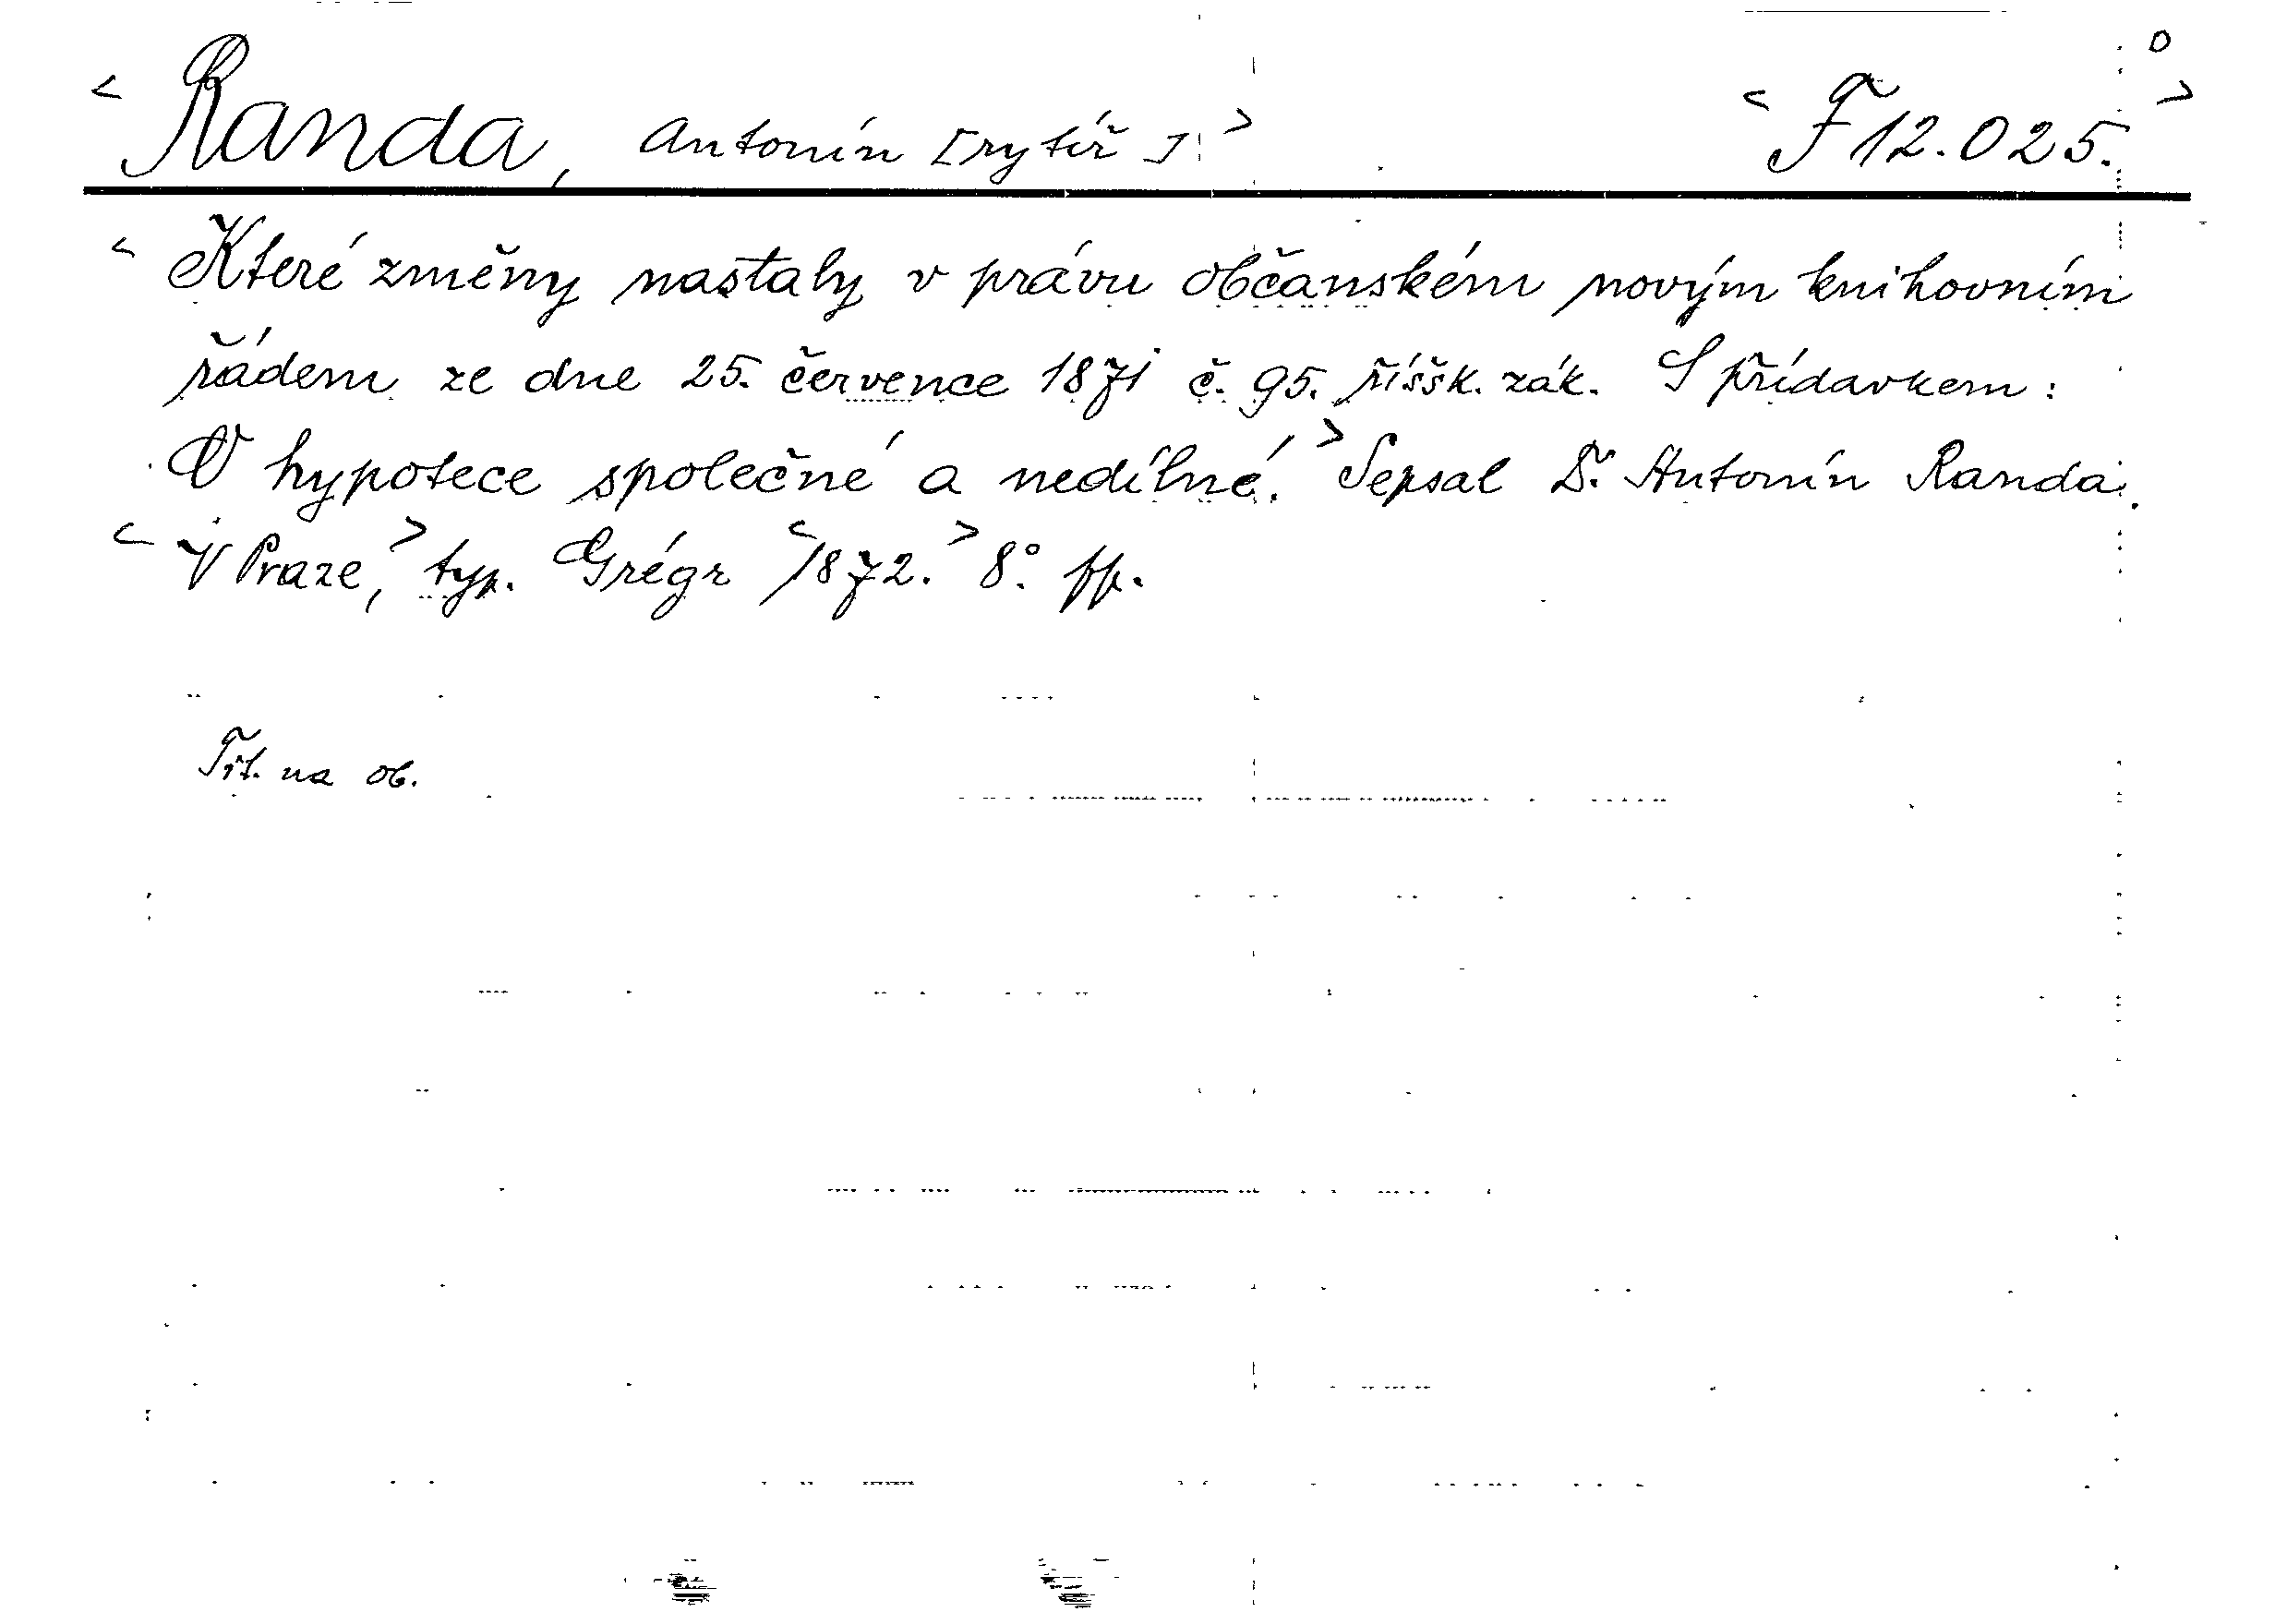 < Randa, Antonín [rytíř]. > < F 12.025. >
< Které změny nastaly v právu občanském novým knihovním
řádem ze dne 25. července 1871 č. 95. říšsk. zák. S přídavkem:
O hypotece společné a nedílné. > Sepsal Dr. Antonín Randa.
< V Praze, > typ. Grégr < 1872. > 8°. pp.
Tit. na ob.